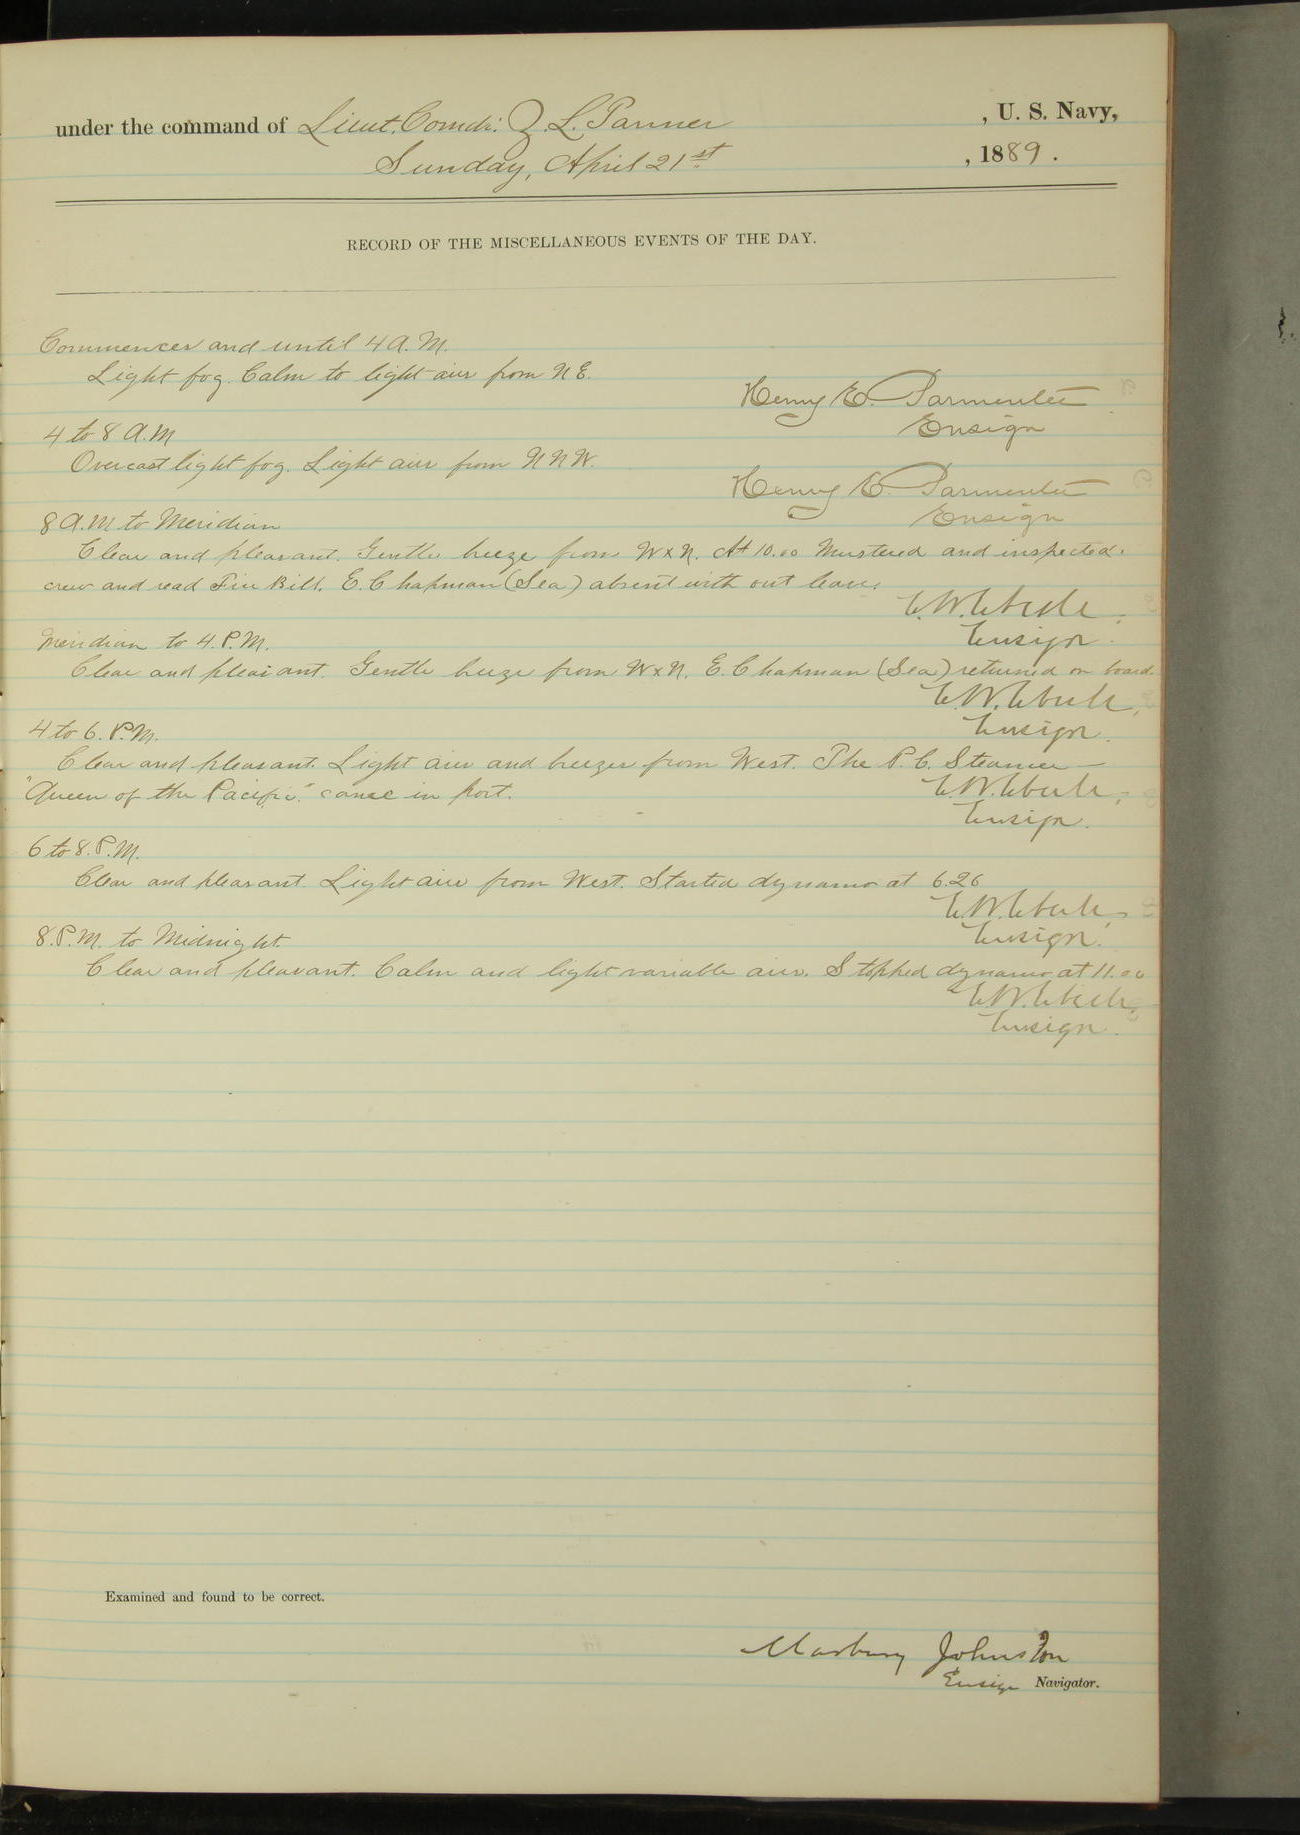 under the command of Lieut. Comdr. Z. L. Tanner , U. S. Navy,
Sunday, April 21st , 1889.
RECORD OF THE MISCELLANEOUS EVENTS OF THE DAY.
Commences and until 4 A.M.
Light fog. Calm to light airs from N E.
Henry E. Parmenter
Ensign
4 to 8 A.M
Overcast light fog. Light airs from N N W.
Henry E. Parmenter
Ensign
8 A.M to Meridian
Clear and pleasant. Gentle breeze from W x N. At 10.00 Mustered and inspected
crew and read Fire Bill. E. Chapman (Sea) absent with out leave.
E. W. Eberle,
Ensign.
Meridian to 4. P.M.
Clear and pleasant. Gentle breeze from W x N. E. Chapman (Sea) returned on board.
E. W. Eberle,
Ensign.
4 to 6. P.M.
Clear and pleasant. Light airs and breezes from West. The P. C. Steamer —
"Queen of the Pacific." came in port.
E. W. Eberle,
Ensign.
6 to 8. P.M.
Clear and pleasant. Light airs from West. Started dynamo at 6.26
E. W. Eberle,
Ensign.
8. P.M. to Midnight
Clear and pleasant. Calm and light variable airs. Stopped dynamo at 11.00
E. W. Eberle,
Ensign.
Examined and found to be correct.
Marbury Johnston
Ensign Navigator.